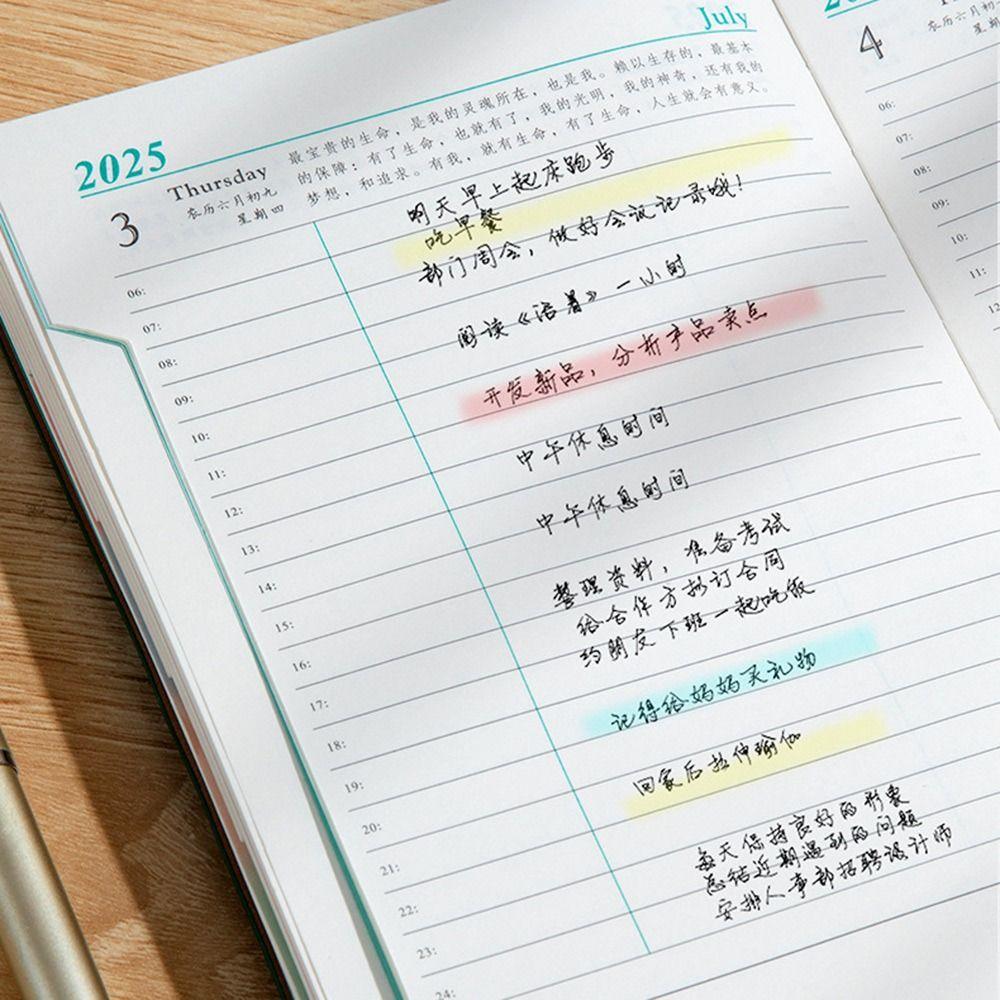 July
最宝贵的生命，是我的灵魂所在，也是我。赖以生存的，最基本
的保障：有了生命，也就有了，我的光明，我的神奇，还有我的
梦想，和追求。有我，就有生命，有了生命，人生就会有意义。
2025
Thursday
农历六月初九
星期四
3
明天早上起床跑步
吃早餐
部门周会，做好会议记录哦！
阅读《活着》一小时
开发新品，分析产品卖点
中午休息时间
中午休息时间
整理资料，准备考试
给合作方拟订合同
约朋友下班一起吃饭
记得给妈妈买礼物
回家后拉伸瑜伽
每天保持良好的形象
总结近期遇到的问题
安排人事部招聘设计师
06:
07:
08:
09:
10:
11:
12:
13:
14:
15:
16:
17:
18:
19:
20:
21:
22:
23:
24:
4
农历六月初
06:
07:
08:
09:
10:
11: